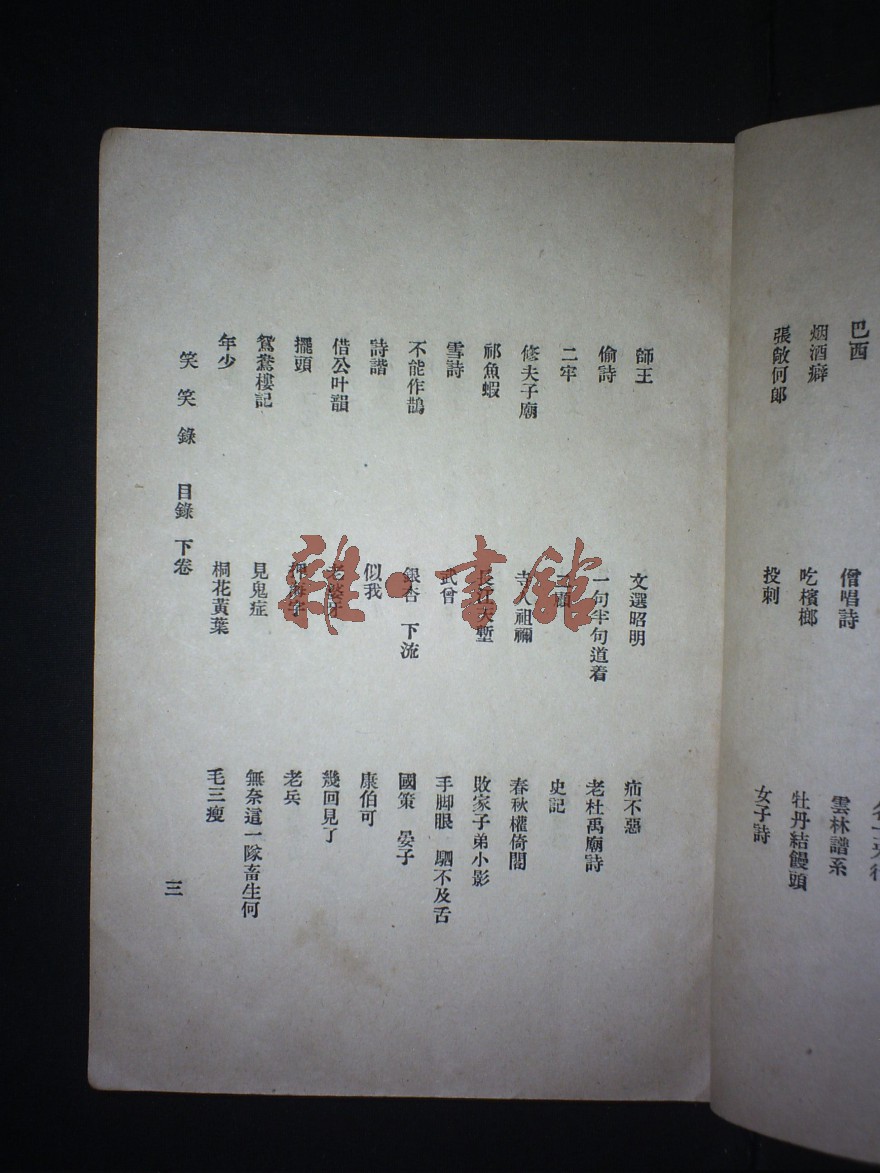 巴西 僧唱詩 雲林譜系
烟酒癖 吃檳榔 牡丹結饅頭
張敞何郎 投刺 女子詩
師王 文選昭明 不惡
偷詩 一句半句道着 老杜禹廟詩
二牢 史記
修夫子廟 寺人祖禰 春秋權倚閣
祁魚蝦 長江天塹 敗家子弟小影
雪詩 武曾 手脚眼 駟不及舌
不能作鵲 銀杏 下流 國策 晏子
詩諧 似我 康伯可
借公叶韻 老婆牙 幾回見了
擺頭 字 老兵
鴛鴦樓記 見鬼症 無奈這一隊畜生何
年少 桐花黃葉 毛三瘦
笑笑錄 目錄 下卷 三
雜·書館